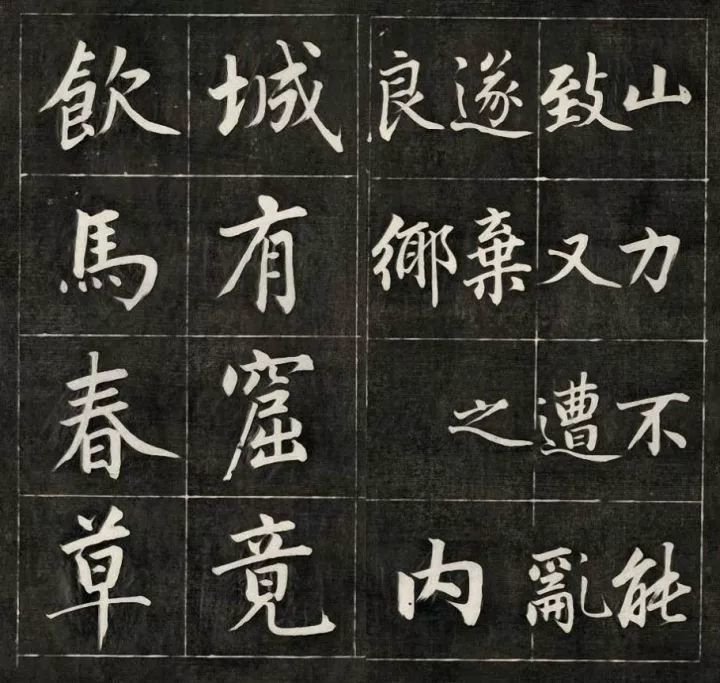 山力不能
致又遭亂
遂棄之
良鄉内
城有窟竟
飲馬春草